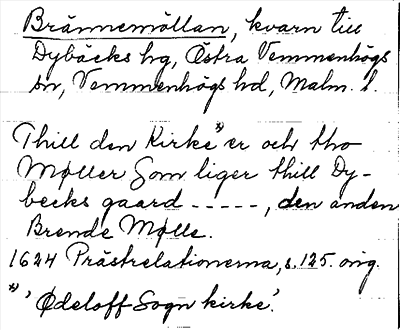 Brännemöllan, kvarn till
Dybäcks hg, Östra Vemmenhögs
sn, Vemmenhögs hd, Malm. l.
Thill den Kirke*) er och tho
Møller Som liger thill Dy-
becks gaard -----, den anden
Brende Mølle.
1624 Prästrelationerna, s. 125. orig.
*) 'Ødeloff Sogn kirke'.